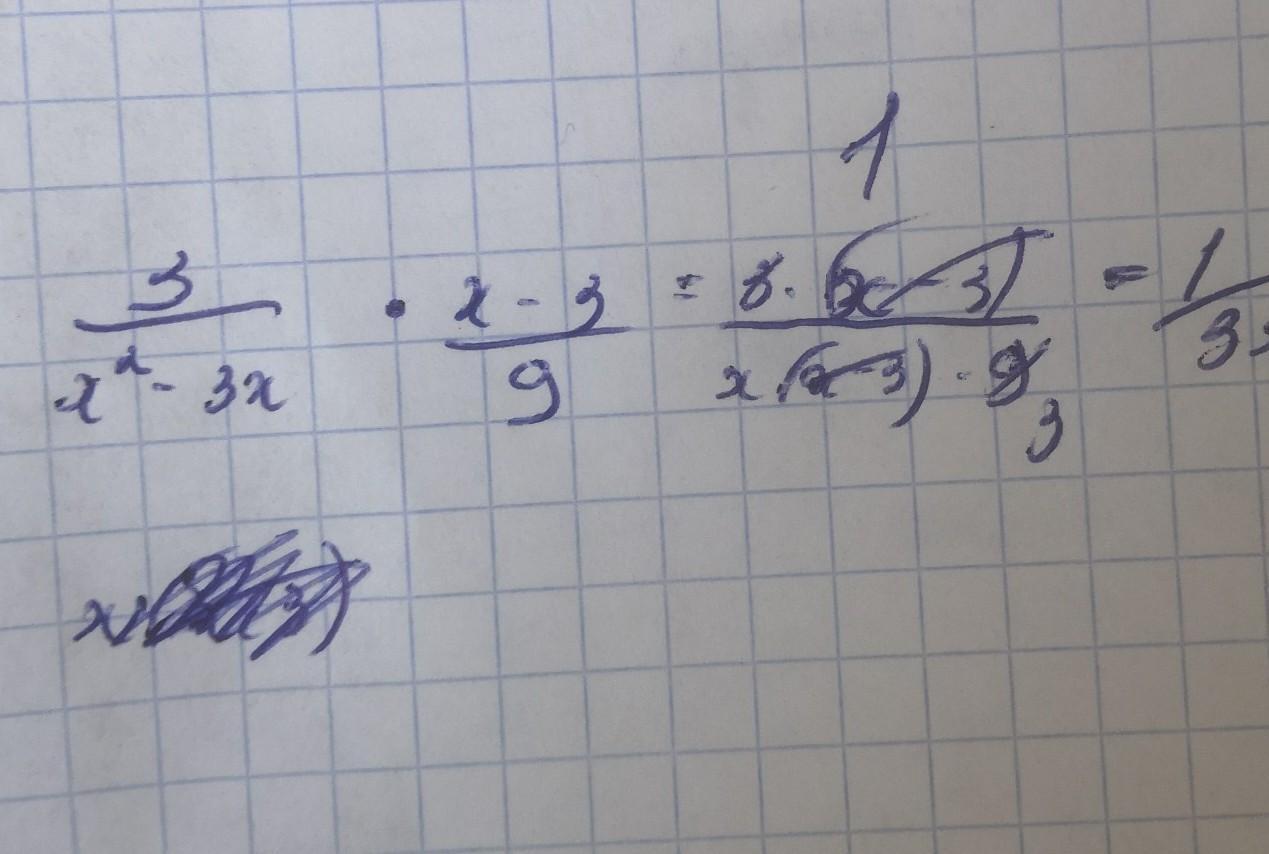 1
3/(x² - 3x) · (x - 3)/9 = 3·(x - 3)/(x·(x-3)·9) = 1/3
3